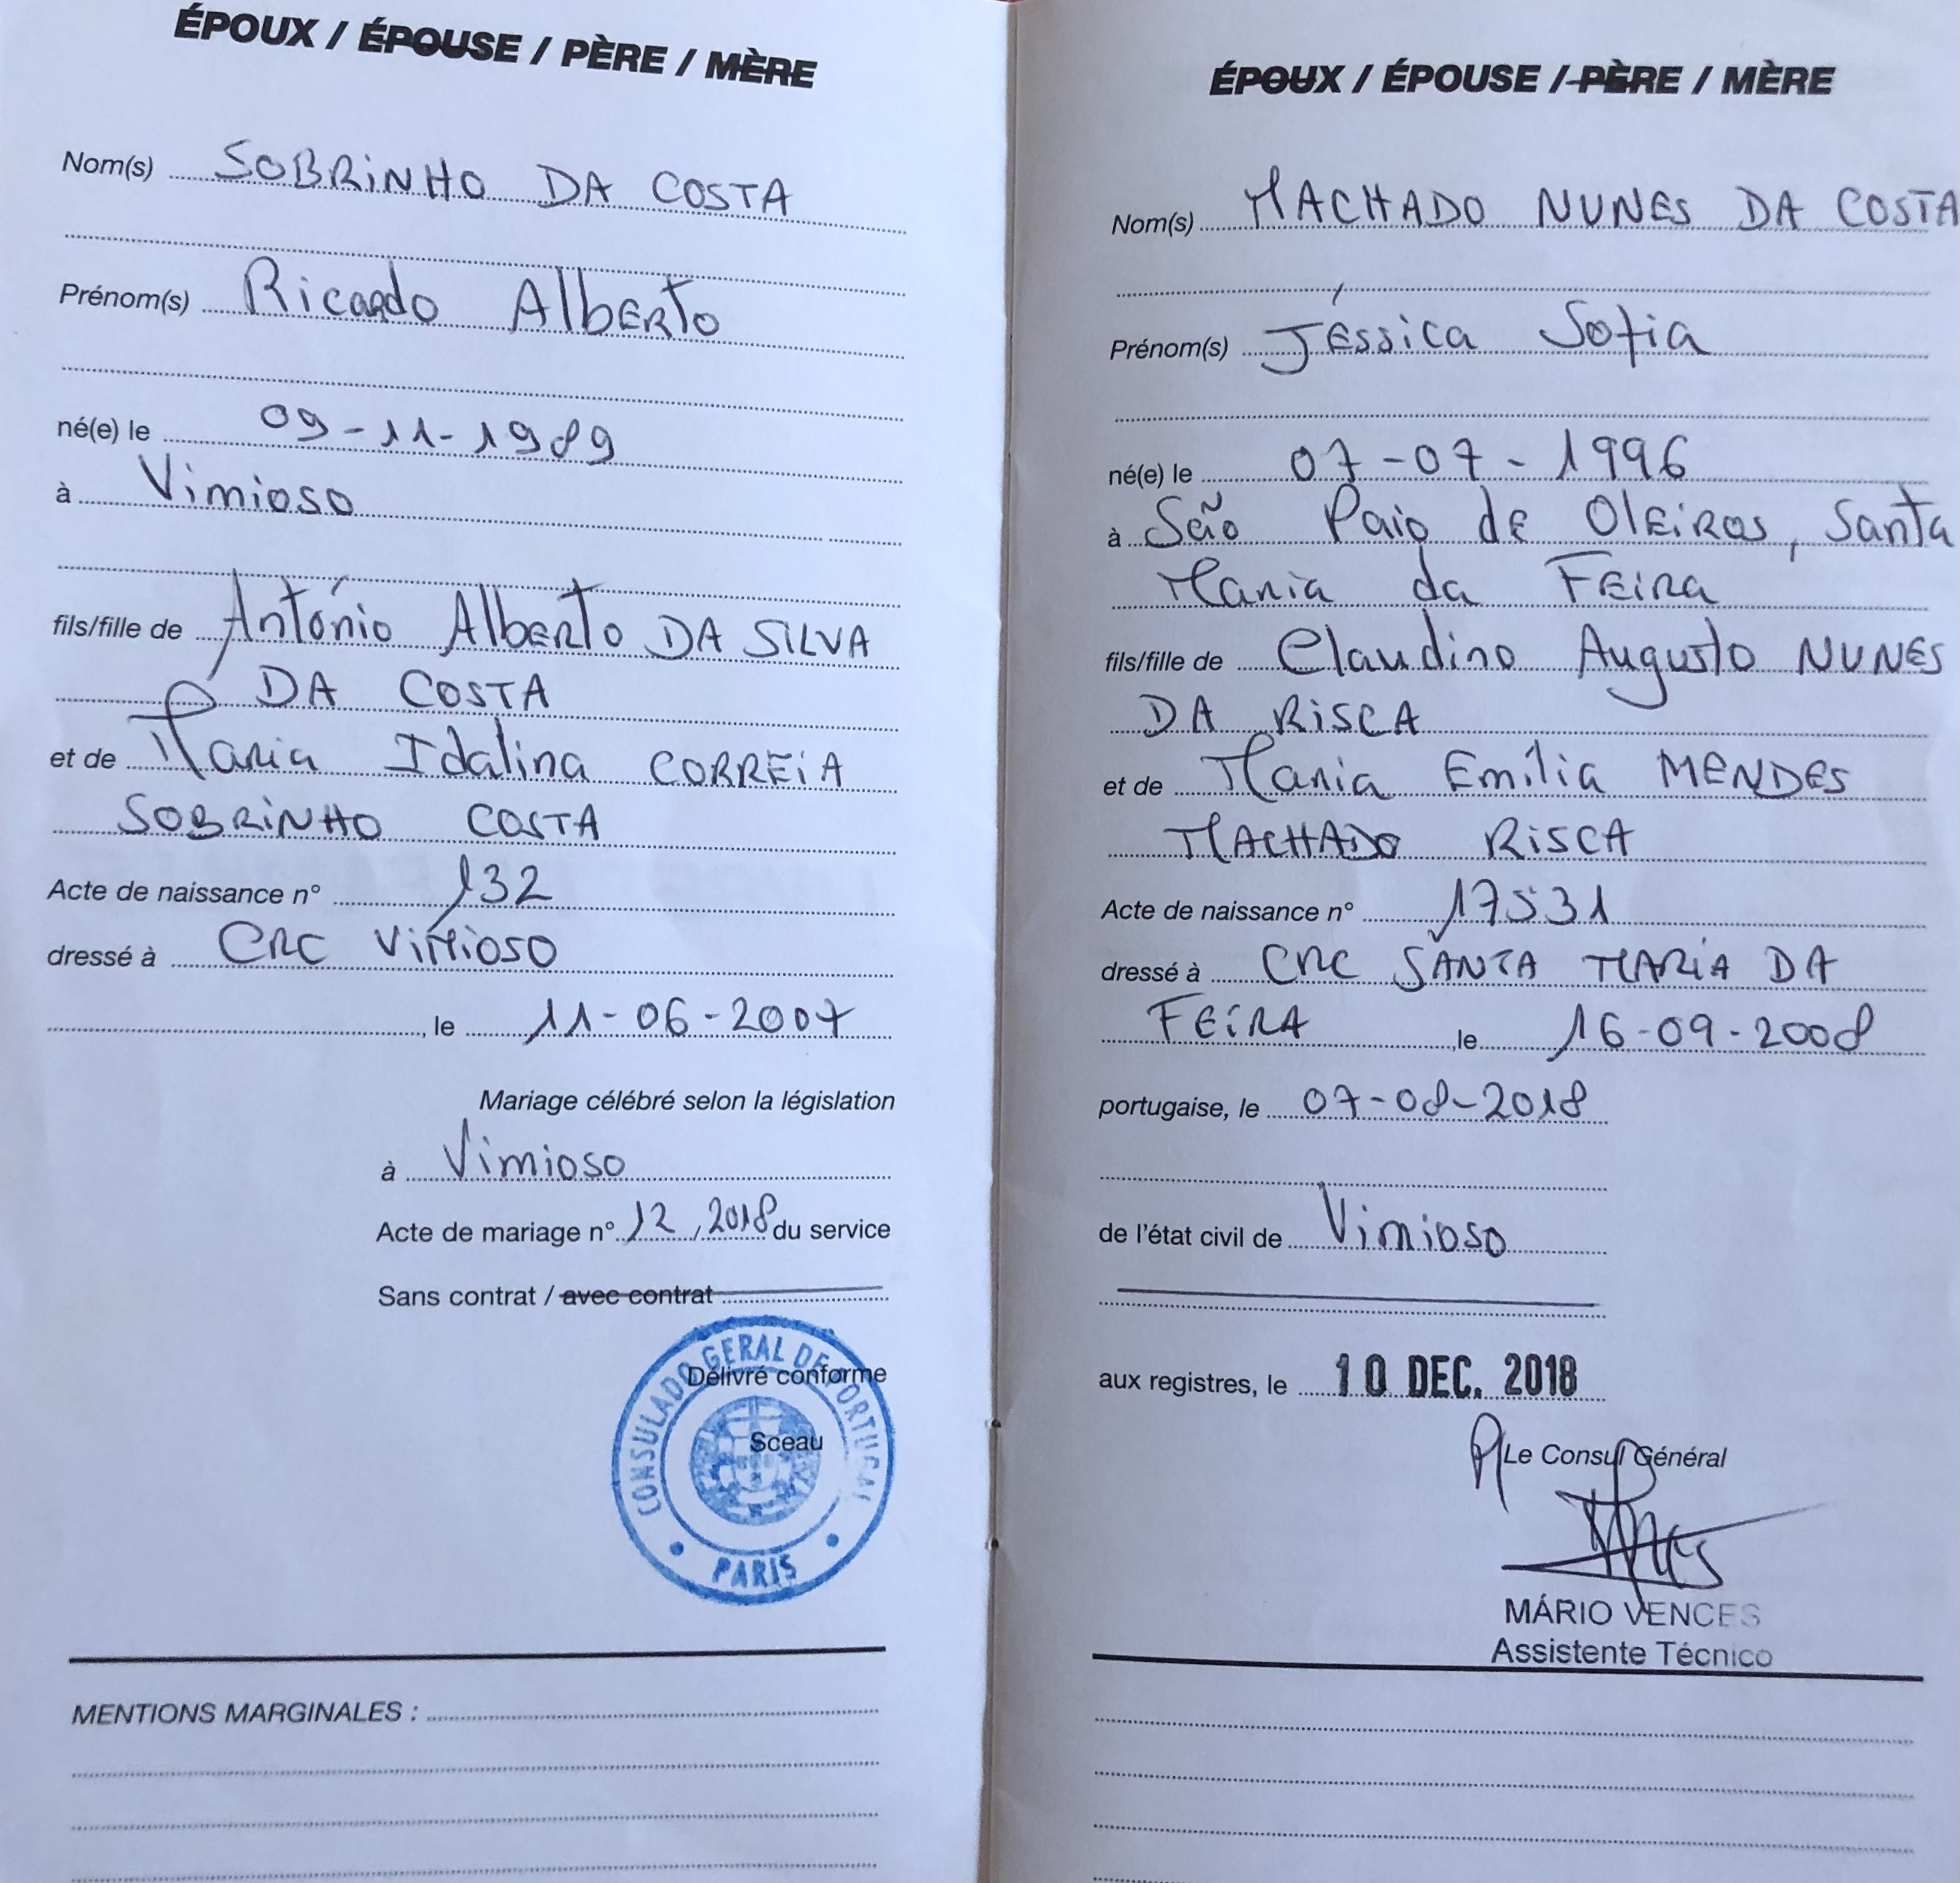 ÉPOUX / ÉPOUSE / PÈRE / MÈRE
Nom(s) SOBRINHO DA COSTA
Prénom(s) Ricardo Alberto
né(e) le 09-11-1989
à Vimioso
fils/fille de António Alberto DA SILVA
DA COSTA
et de Maria Idalina CORREIA
SOBRINHO COSTA
Acte de naissance n° 132
dressé à CRC Vimioso
, le 11-06-2007
Mariage célébré selon la législation
à Vimioso
Acte de mariage n° 12 / 2018 du service
Sans contrat / avec contrat
Délivré conforme
Sceau
CONSULADO GERAL DE PORTUGAL
PARIS
MENTIONS MARGINALES :
ÉPOUX / ÉPOUSE / PÈRE / MÈRE
Nom(s) MACHADO NUNES DA COSTA
Prénom(s) Jéssica Sofia
né(e) le 07-07-1996
à São Paio de Oleiros, Santa
Maria da Feira
fils/fille de Claudino Augusto NUNES
DA RISCA
et de Maria Emília MENDES
MACHADO RISCA
Acte de naissance n° 17531
dressé à CRC SANTA MARIA DA
FEIRA , le 16-09-2008
portugaise, le 07-08-2018
de l'état civil de Vimioso
aux registres, le 10 DEC. 2018
Le Consul Général
MÁRIO VENCES
Assistente Técnico